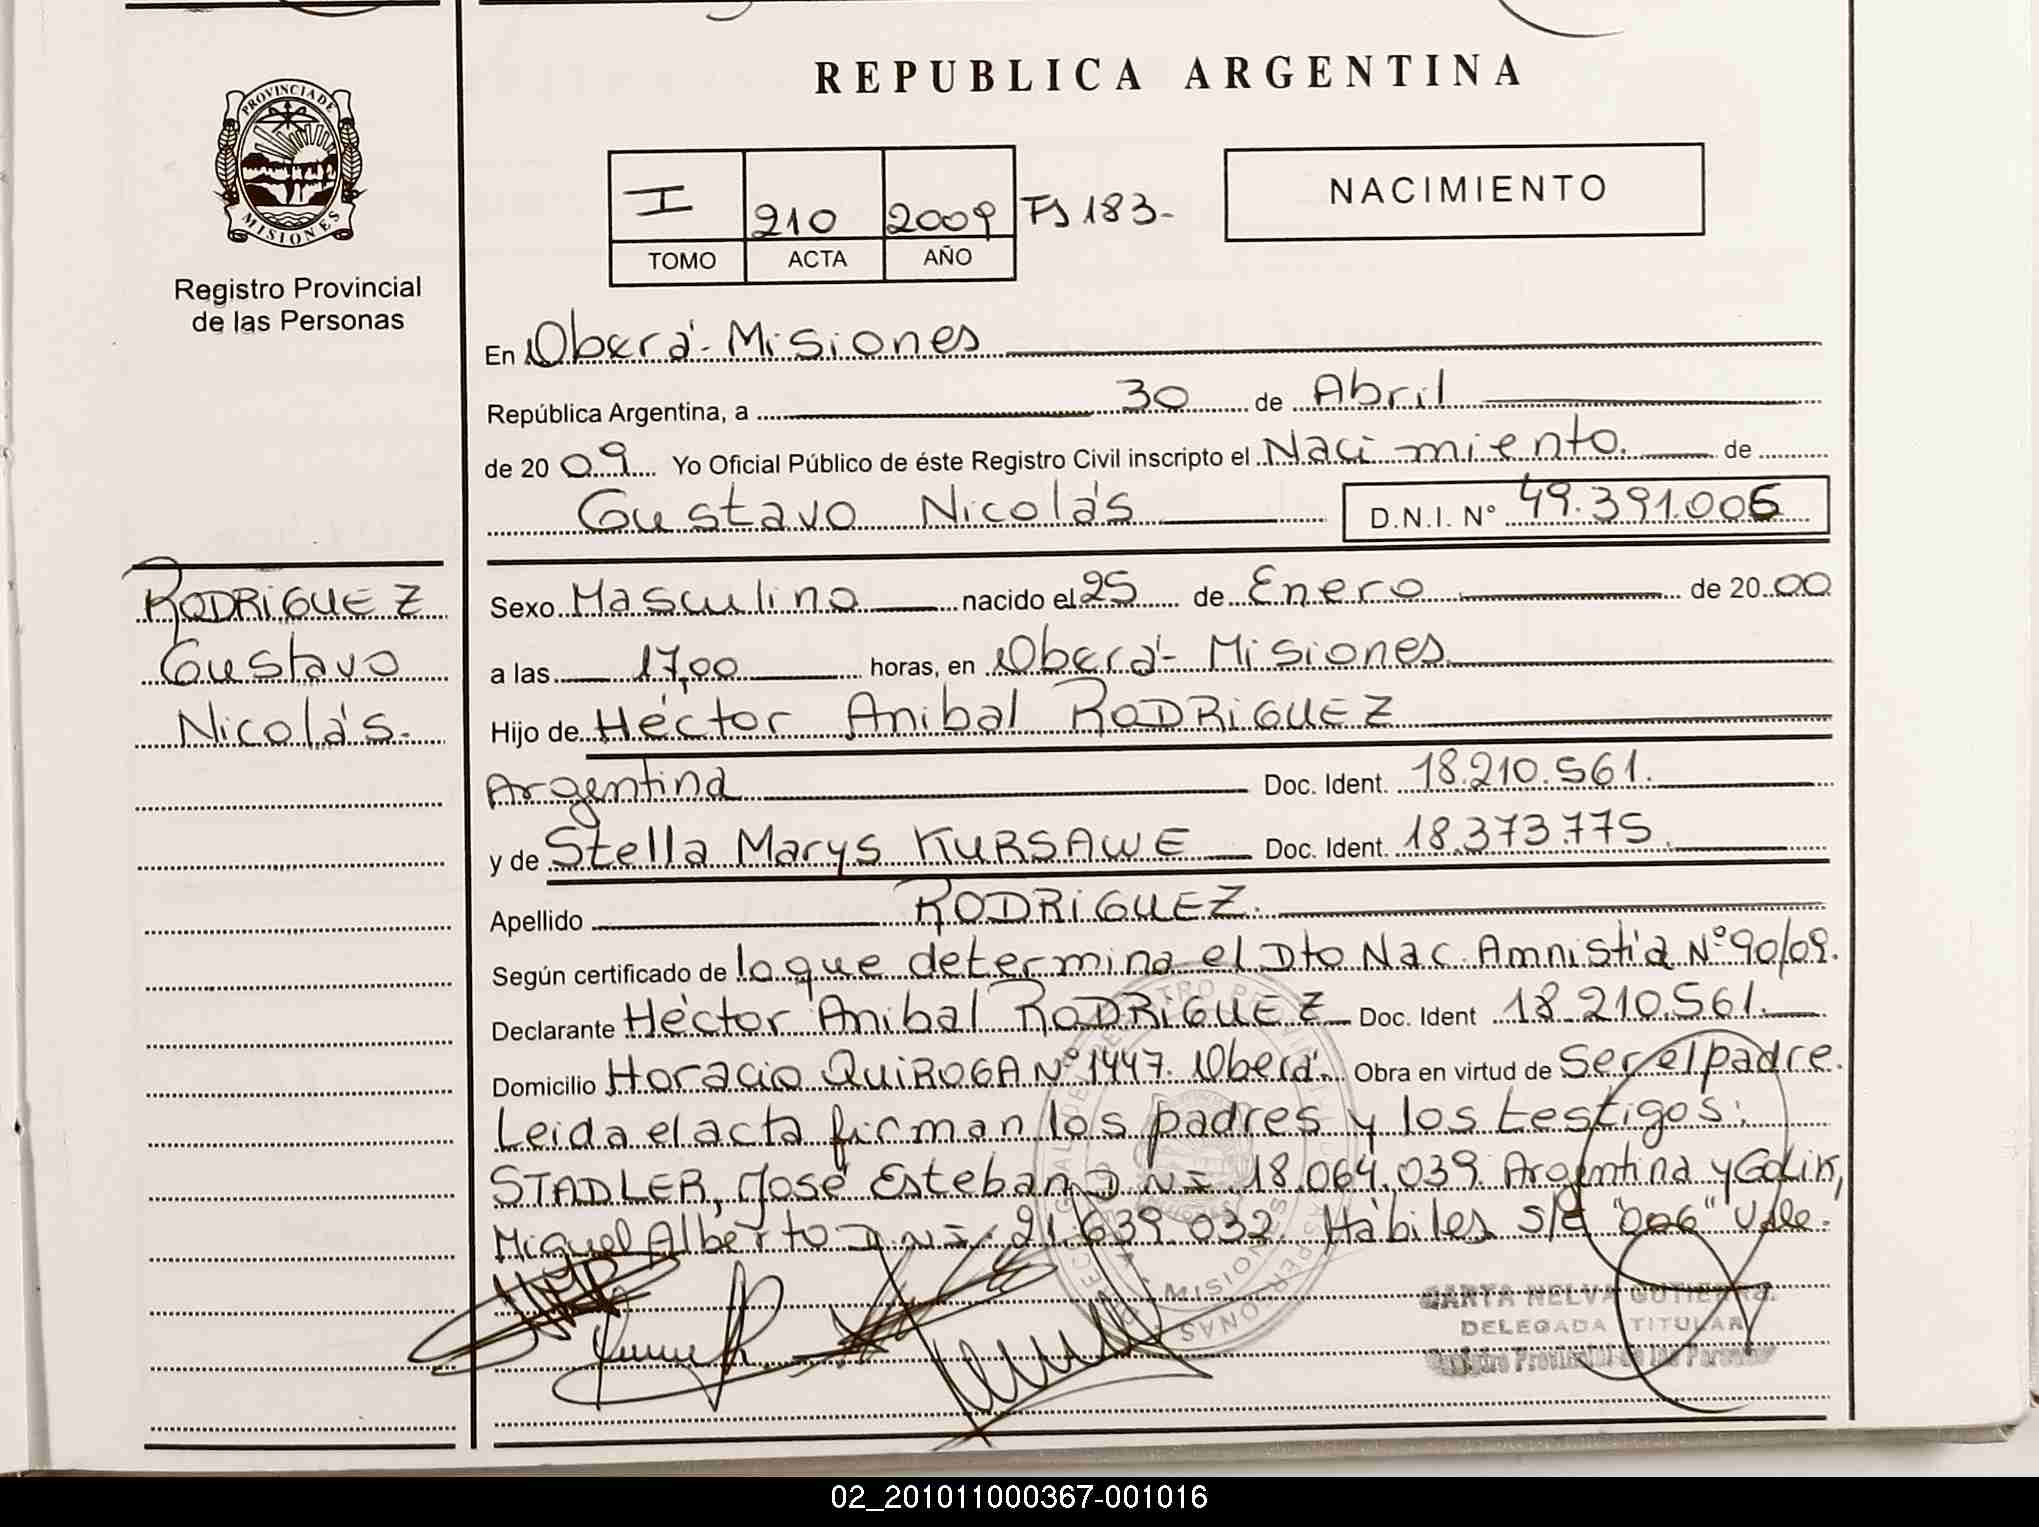 REPUBLICA ARGENTINA
PROVINCIA DE
MISIONES
Registro Provincial
de las Personas
I 210 2009 Fs 183-
TOMO ACTA AÑO
NACIMIENTO
En Oberá - Misiones
República Argentina, a 30 de Abril
de 20 09 Yo Oficial Público de éste Registro Civil inscripto el Nacimiento. de
Gustavo Nicolás D.N.I. N° 49.391.006
RODRIGUEZ
Gustavo
Nicolás.
Sexo Masculino nacido el 25 de Enero de 20 00
a las 17,00 horas, en Oberá - Misiones
Hijo de Héctor Anibal RODRIGUEZ
Argentina Doc. Ident. 18.210.561.
y de Stella Marys KURSAWE Doc. Ident. 18.373.775.
Apellido RODRIGUEZ.
Según certificado de lo que determina el Dto Nac. Amnistía N° 90/09.
Declarante Héctor Anibal RODRIGUEZ Doc. Ident 18.210.561.
Domicilio Horacio QUIROGA N° 1447. Oberá. Obra en virtud de Ser el padre.
Leida el acta firman los padres y los testigos:
STADLER, José Esteban D N I. 18.064.039. Argentina y
Miguel Alberto D N I. 21.639.032. Hábiles S/E "006" Vale.
MISIONES
NELVA
DELEGADA TITULAR
Registro Provincial de las Personas
02_201011000367-001016